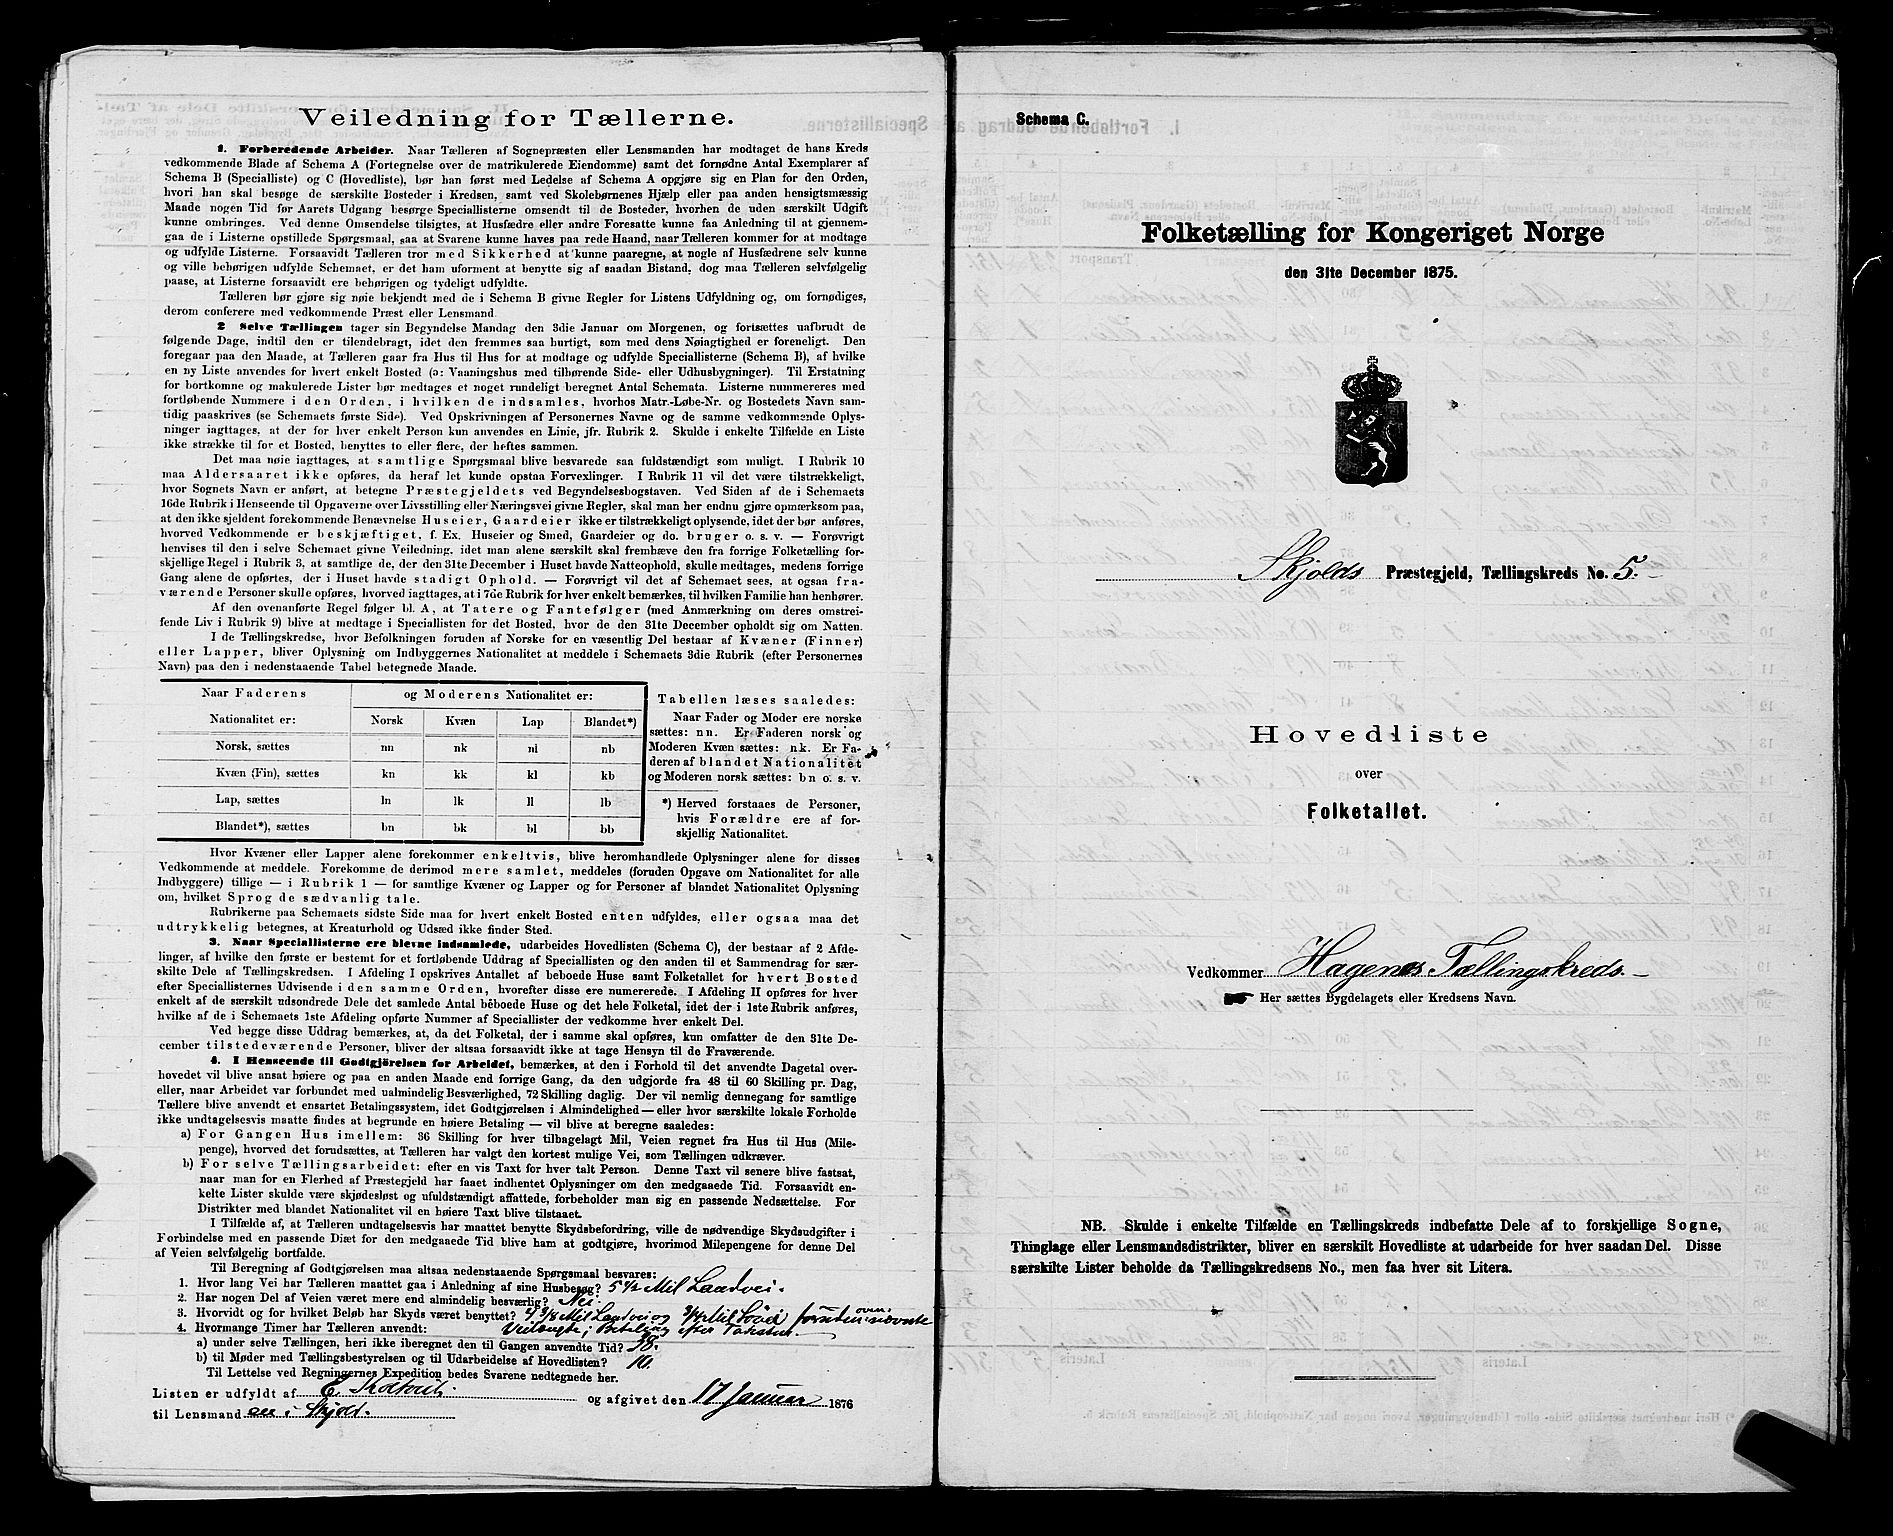 Veiledning for Tællerne.
1. Forberedende Arbeider. Naar Tælleren af Sognepræsten eller Lensmanden har modtaget de hans Kreds
vedkommende Blade af Schema A (Fortegnelse over de matrikulerede Eiendomme) samt det fornødne Antal Exemplarer af
Schema B (Specialliste) og C (Hovedliste), bør han først med Ledelse af Schema A opgjøre sig en Plan for den Orden,
hvori han skal besøge de særskilte Bosteder i Kredsen, samt ved Skolebørnenes Hjælp eller paa anden hensigtsmæssig
Maade nogen Tid før Aarets Udgang besørge Speciallisterne omsendt til de Bosteder, hvorhen de uden særskilt Udgift
kunne ombringes. Ved denne Omsendelse tilsigtes, at Husfædre eller andre Foresatte kunne faa Anledning til at gjennem-
gaa de i Listerne opstillede Spørgsmaal, saa at Svarene kunne haves paa rede Haand, naar Tælleren kommer for at modtage
og udfylde Listerne. Forsaavidt Tælleren tror med Sikkerhed at kunne paaregne, at nogle af Husfædrene selv kunne
og ville behørigen udfylde Schemaet, er det ham uforment at benytte sig af saadan Bistand, dog maa Tælleren selvfølgelig
paase, at Listerne forsaavidt ere behørigen og tydeligt udfyldte.
Tælleren bør gjøre sig nøie bekjendt med de i Schema B givne Regler for Listens Udfyldning og, om fornødiges,
derom conferere med vedkommende Præst eller Lensmand.
2 Selve Tællingen tager sin Begyndelse Mandag den 3die Januar om Morgenen, og fortsættes uafbrudt de
følgende Dage, indtil den er tilendebragt, idet den fremmes saa hurtigt, som med dens Nøiagtighed er foreneligt. Den
foregaar paa den Maade, at Tælleren gaar fra Hus til Hus for at modtage og udfylde Speciallisterne (Schema B), af hvilke
en ny Liste anvendes for hvert enkelt Bosted (ɔ: Vaaningshus med tilhørende Side- eller Udhusbygninger). Til Erstatning
for bortkomne og makulerede Lister bør medtages et noget rundeligt beregnet Antal Schemata. Listerne nummereres med
fortløbende Nummere i den Orden, i hvilken de indsamles, hvorhos Matr.-Løbe-Nr. og Bostedets Navn sam-
tidig paaskrives (se Schemaets første Side). Ved Opskrivningen af Personernes Navne og de samme vedkommende Oplys-
ninger iagttages, at der for hver enkelt Person kun anvendes en Linie, jfr. Rubrik 2. Skulde i enkelte Tilfælde en Liste
ikke strække til for et Bosted, benyttes to eller flere, der heftes sammen.
Det maa nøie iagttages, at samtlige Spørgsmaal blive besvarede saa fuldstændigt som muligt. I Rubrik 10
maa Aldersaaret ikke opføres, da heraf let kunde opstaa Forvexlinger. I Rubrik 11 vil det være tilstrækkeligt,
hvor Sognets Navn er anført, at betegne Præstegjeldets ved Begyndelsesbogstaven. Ved Siden af de i Schemaets
16de Rubrik i Henseende til Opgaverne over Livsstilling eller Næringsvei givne Regler, skal man her endnu gjøre opmærksom paa,
at den ikke sjeldent forekommende Benævnelse Huseier, Gaardeier ikke er tilstrækkeligt oplysende, idet der bør anføres,
hvorved Vedkommende er beskjæftiget, f. Ex. Huseier og Smed, Gaardeier og do. bruger o. s. v. — Forøvrigt
henvises til den i selve Schemaet givne Veiledning, idet man alene særskilt skal fremhæve den fra forrige Folketælling for-
skjellige Regel i Rubrik 3, at samtlige de, der den 31te December i Huset havde Natteophold, skulle medtages, medens forrige
Gang alene de opførtes, der i Huset havde stadigt Ophold. — Forøvrigt vil det af Schemaet sees, at ogsaa fra-
værende Personer skulle opføres, hvorved iagttages, at i 7de Rubrik for hver enkelt bemærkes, til hvilken Familie han henhører.
Af den ovenanførte Regel følger bl. A, at Tatere og Fantefølger (med Anmærkning om deres omstrei-
fende Liv i Rubrik 9) blive at medtage i Speciallisten for det Bosted, hvor de den 31te December opholdt sig om Natten.
I de Tællingskredse, hvor Befolkningen foruden af Norske for en væsentlig Del bestaar af Kvæner (Finner)
eller Lapper, bliver Oplysning om Indbyggernes Nationalitet at meddele i Schemaets 3die Rubrik (efter Personernes
Navn) paa den i nedenstaaende Tabel betegnede Maade.
Naar Faderens og Moderens Nationalitet er:
Nationalitet er: Norsk Kvæn Lap Blandet*)
Norsk, sættes nn nk nl nb
Kvæn (Fin), sættes kn kk kl kb
Lap, sættes ln lk ll lb
Blandet*), sættes bn bk bl bb
Tabellen læses saaledes:
Naar Fader og Moder ere norske
sættes: nn. Er Faderen norsk og
Moderen Kvæn sættes: nk. Er Fa-
deren af blandet Nationalitet
og Moderen norsk sættes: bn o. s. v.
*) Herved forstaaes de Personer,
hvis Forældre ere af for-
skjellig Nationalitet.
Hvor Kvæner eller Lapper alene forekommer enkeltvis, blive heromhandlede Oplysninger alene for disses
Vedkommende at meddele. Forekomme de derimod mere samlet, meddeles (foruden Opgave om Nationalitet for alle
Indbyggere) tillige — i Rubrik 1 — for samtlige Kvæner og Lapper og for Personer af blandet Nationalitet Oplysning
om, hvilket Sprog de sædvanlig tale.
Rubrikerne paa Schemaets sidste Side maa for hvert enkelt Bosted enten udfyldes, eller ogsaa maa det
udtrykkelig betegnes, at Kreaturhold og Udsæd ikke finder Sted.
3. Naar Speciallisterne ere blevne indsamlede, udarbeides Hovedlisten (Schema C), der bestaar af 2 Afde-
linger, af hvilke den første er bestemt for et fortløbende Uddrag af Speciallisten og den anden til et Sammendrag for sær-
skilte Dele af Tællingskredsen. I Afdeling I opskrives Antallet af beboede Huse samt Folketallet for hvert Bosted
efter Speciallisternes Udvisende i den samme Orden, hvorefter disse ere numererede. I Afdeling II opføres for hver
enkelt af de særskilt udsondrede Dele det samlede Antal beboede Huse og det hele Folketal, idet der i 1ste Rubrik anføres,
hvilke af de i Schemaets 1ste Afdeling opførte Nummer af Speciallister der vedkomme hver enkelt Del.
Ved begge disse Uddrag bemærkes, at, da det Folketal, der i samme skal opføres, kun omfatter de den 31te De-
cember tilstedeværende Personer, bliver der altsaa forsaavidt ikke at tage Hensyn til de Fraværende.
4. I Henseende til Godtgjörelsen for Arbeidet, bemærkes, at den i Forhold til det anvendte Dagetal over-
hovedet vil blive ansat høiere og paa en anden Maade end forrige Gang, da den udgjorde fra 48 til 60 Skilling pr. Dag,
eller, naar Arbeidet var forbundet med ualmindelig Besværlighed, 72 Skilling daglig. Der vil nemlig dennegang for samtlige
Tællere blive anvendt et ensartet Betalingssystem, idet Godtgjørelsen i Almindelighed — eller hvor særskilte lokale Forholde
ikke undtagelsesvis maatte findes at begrunde en høiere Betaling — vil blive at beregne saaledes:
a) For Gangen Hus imellem: 36 Skilling for hver tilbagelagt Mil, Veien regnet fra Hus til Hus (Mile-
penge), hvorved det forudsættes, at Tælleren har valgt den kortest mulige Vei, som Tællingen udkræver.
b) For selve Tællingsarbeidet: efter en vis Taxt for hver talt Person. Denne Taxt vil senere blive fastsat,
naar man for en Flerhed af Præstegjeld har faaet indhentet Oplysninger om den medgaaede Tid. Forsaavidt en-
kelte Lister skulde være skjødesløst og ufuldstændigt affattede, forbeholder man sig en passende Nedsættelse. For
Distrikter med blandet Nationalitet vil en høiere Taxt blive tilstaaet.
I Tilfælde af, at Tælleren undtagelsesvis har maattet benytte Skydsbefordring, ville de nødvendige Skydsudgifter i
Forbindelse med en passende Diæt for den medgaaede Tid blive ham at godtgjøre, hvorimod Milepengene for denne Del
af Veien selvfølgelig bortfalde.
Til Beregning af Godtgjørelsen maa altsaa nedenstaaende Spørgsmaal besvares:
1. Hvor lang Vei har Tælleren maattet gaa i Anledning af sine Husbesøg? 5 1/2 Mil Landvei.
2. Har nogen Del af Veien været mere end almindelig besværlig? Nei.
3. Hvorvidt og for hvilket Beløb har Skyds været benyttet? 4 3/8 Mil Landvei og 3/4 Mil Sövei foruden ovennævnte
4. Hvormange Timer har Tælleren anvendt:
a) under selve Tællingen, heri ikke iberegnet den til Gangen anvendte Tid? 38.
b) til Møder med Tællingsbestyrelsen og til Udarbeidelse af Hovedlisten? 10.
Til Lettelse ved Regningernes Expedition bedes Svarene nedtegnede her.
Listen er udfyldt af E. og afgivet den 17 Januar 1876
til Lensmanden i Skjold.
Schema C.
Folketælling for Kongeriget Norge
den 31te December 1875.
Skjolds Præstegjeld, Tællingskreds No. 5.
Hovedliste
over
Folketallet.
Vedkommer Hagenes Tællingskreds.
Her sættes Bygdelagets eller Kredsens Navn.
NB. Skulde i enkelte Tilfælde en Tællingskreds indbefatte Dele af to forskjellige Sogne,
Thinglage eller Lensmandsdistrikter, bliver en særskilt Hovedliste at udarbeide for hver saadan Del. Disse
særskilte Lister beholde da Tællingskredsens No., men faa hver sit Litera.